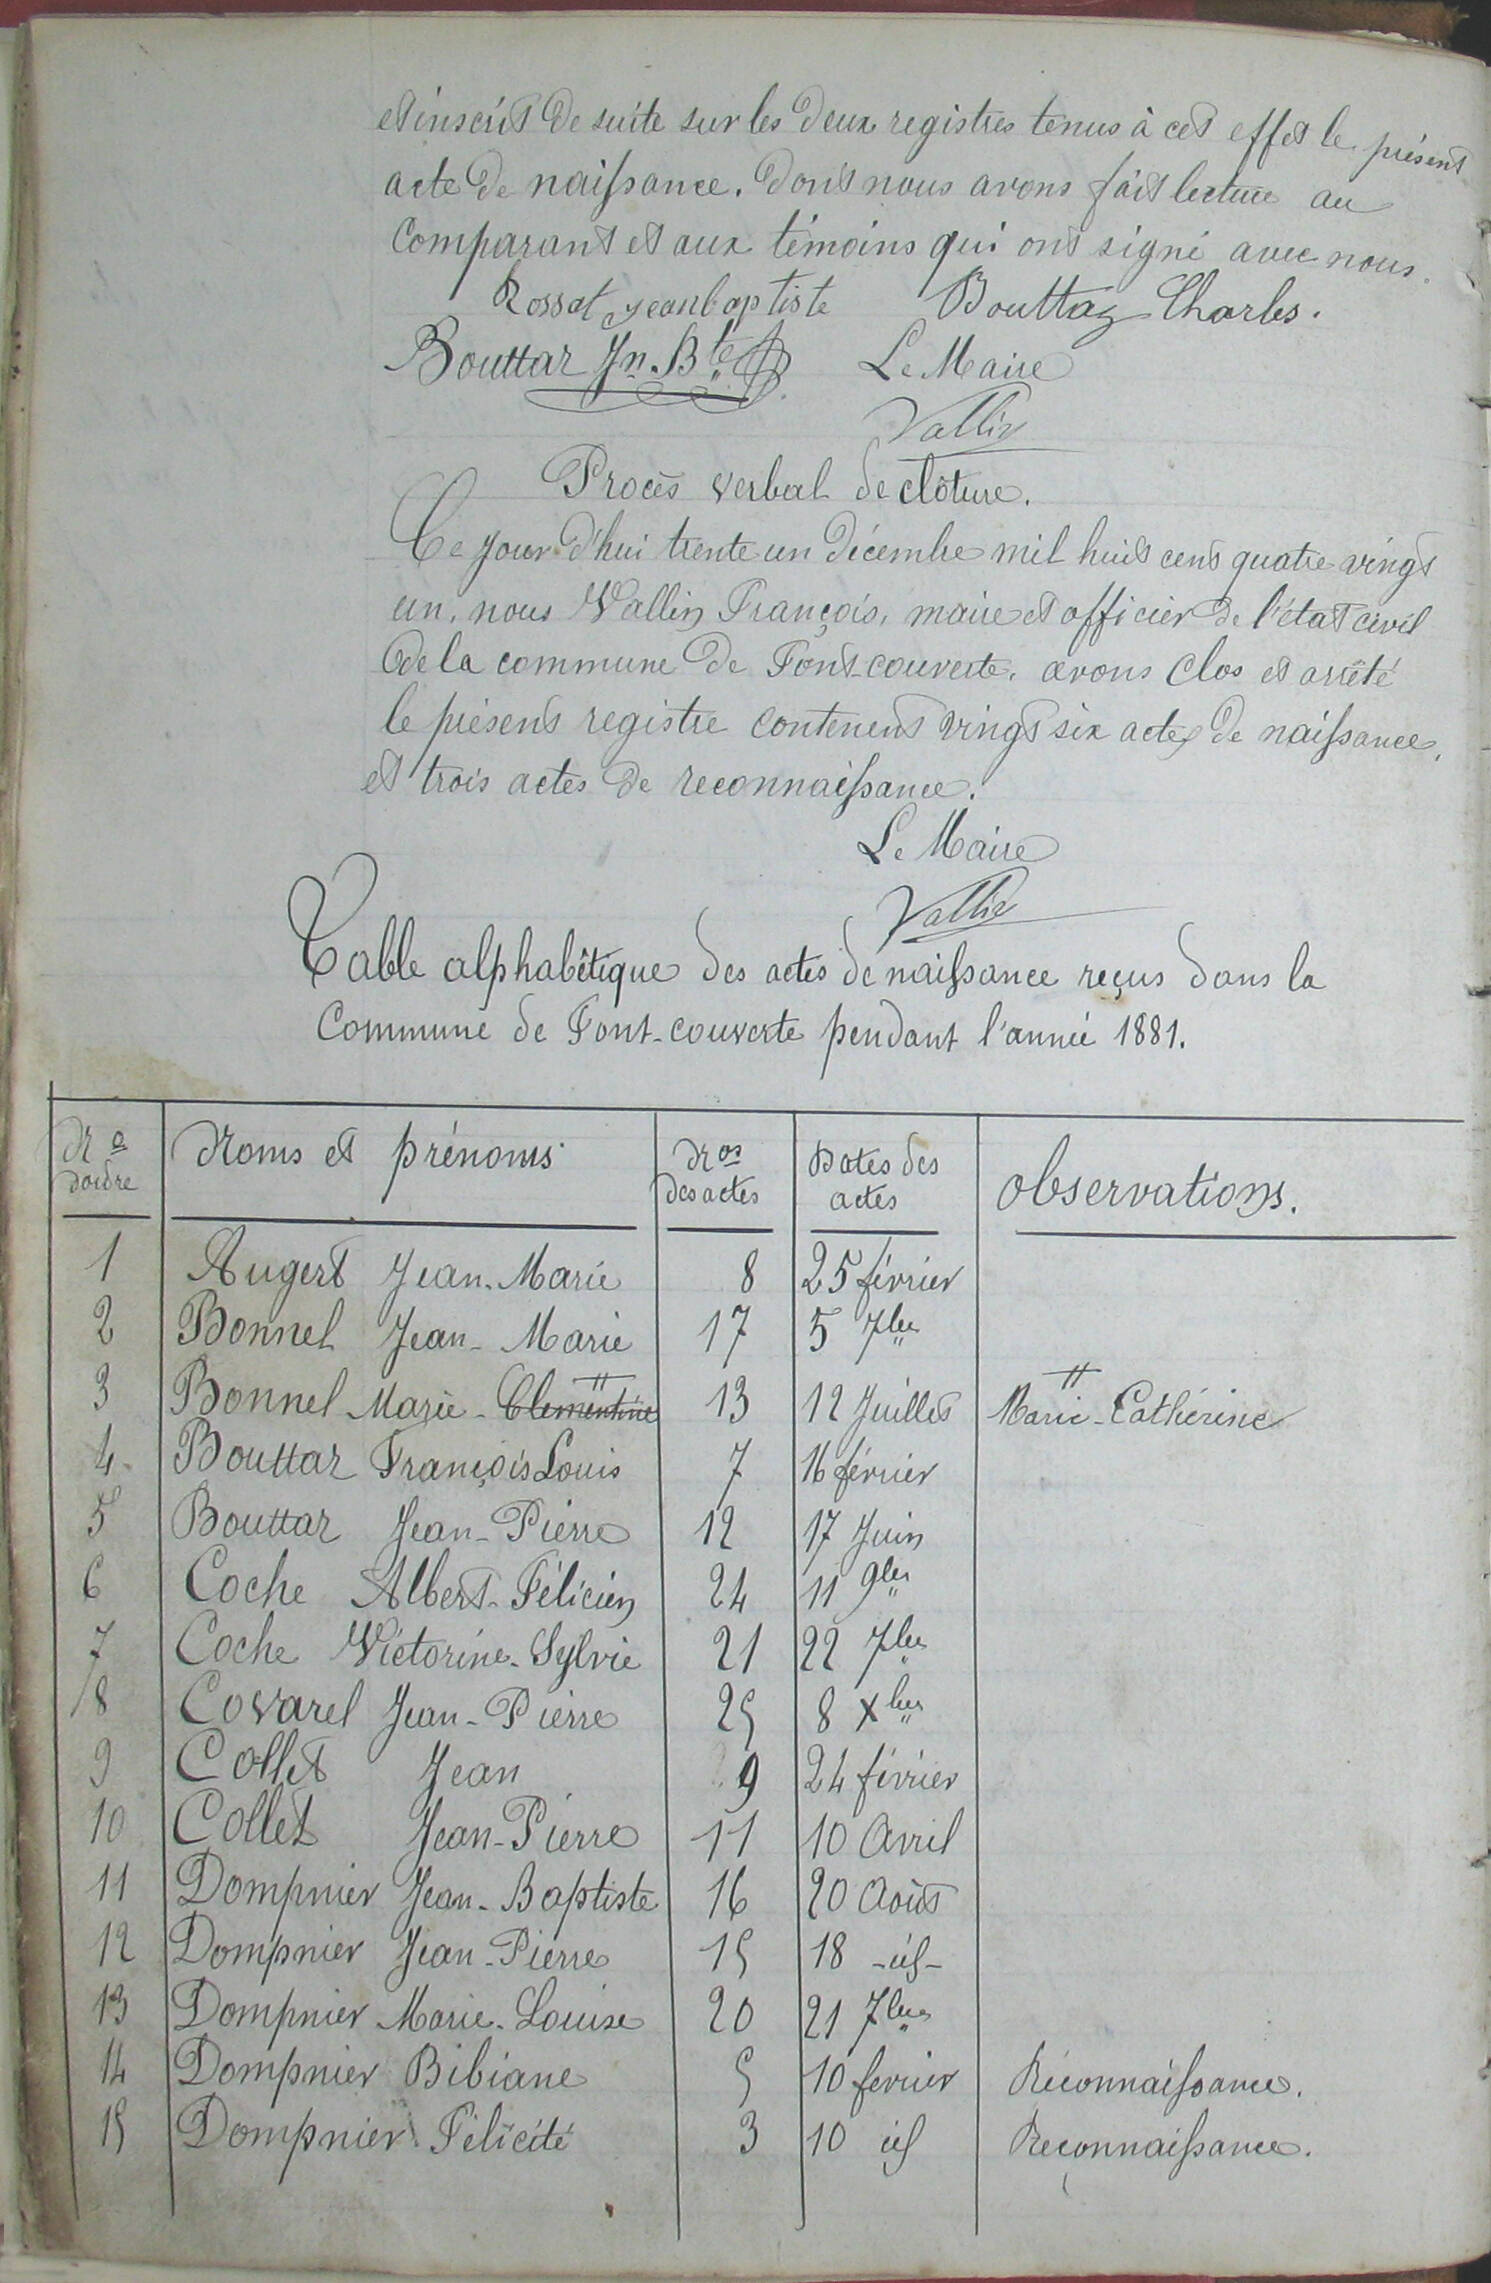 et inscrit de suite sur les deux registres tenus à cet effet le présent
acte de naissance. dont nous avons fait lecture au
comparant et aux témoins qui ont signé avec nous.
Rossat jeanbaptiste Bouttaz Charles.
Bouttaz Jn. Bte Le Maire
Vallin
Procès verbal de clôture.
Ce jour d'hui trente un décembre mil huit cent quatre vingt
un, nous Vallin François, maire et officier de l'état civil
de la commune de Font-couverte, avons clos et arrêté
le présent registre contenent vingt six actes de naissance,
et trois actes de reconnaissance.
Le Maire
Vallin
Table alphabêtique des actes de naissance reçus dans la
Commune de Font-couverte pendant l'année 1881.
No d'ordre Noms et prénoms Nos des actes Dates des actes observations.
1 Augert Jean-Marie 8 25 février
2 Bonnel Jean-Marie 17 5 7bre
3 Bonnel Marie-Clementine 13 12 Juillet Marie-Cathérine
4 Bouttaz François Louis 7 16 février
5 Bouttaz Jean-Pierre 12 17 Juin
6 Coche Albert-Félicien 24 11 9bre
7 Coche Victorine-Sylvie 21 22 7bre
8 Covarel Jean-Pierre 25 8 Xbre
9 Collet Jean 9 24 février
10 Collet Jean-Pierre 11 10 Avril
11 Dompnier Jean-Baptiste 16 20 Août
12 Dompnier Jean-Pierre 15 18 -id-
13 Dompnier Marie-Louise 20 21 7bre
14 Dompnier Bibiane 5 10 fevrier Réconnaissance.
15 Dompnier Félicité 3 10 id Reconnaissance.